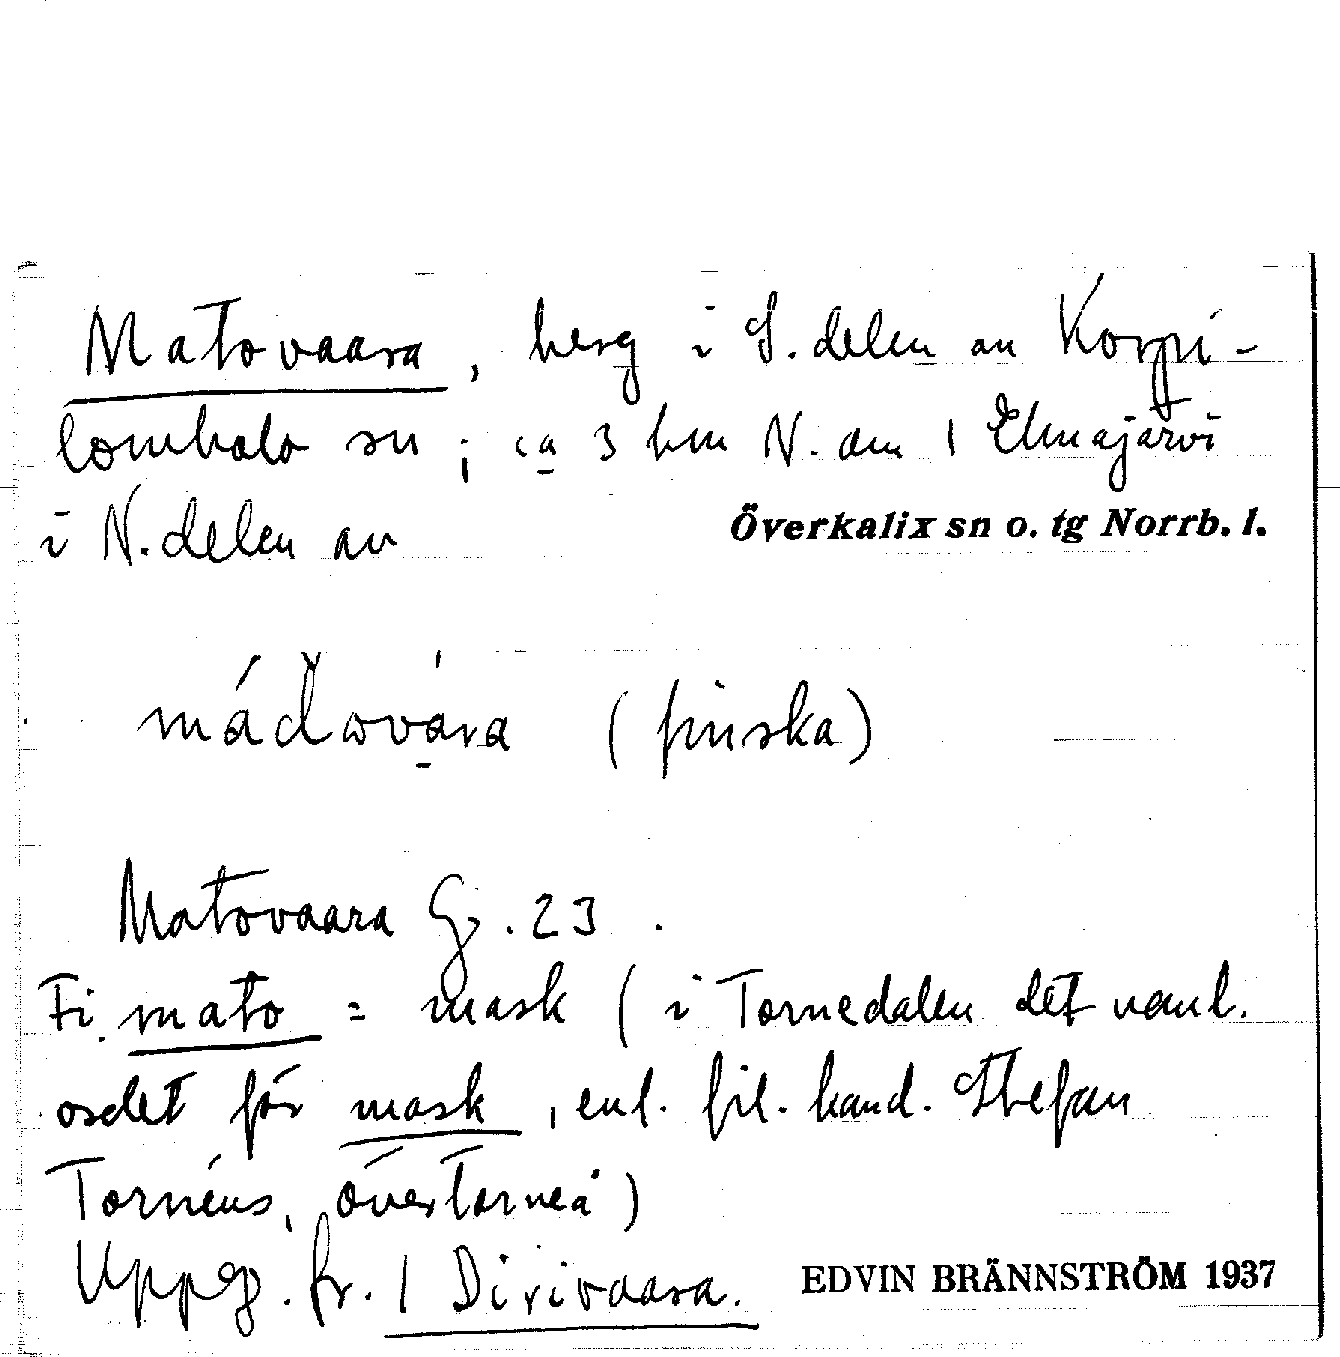 Matovaara, berg i S. delen av Korpi-
lombolo sn; ca 3 km N. om 1 Elmajärvi
i N. delen av Överkalix sn o. tg Norrb. l.
(finska)
Matovaara G. 23.
Fi. mato = mask (i Tornedalen det vanl.
ordet för mask, enl. fil. kand. Stefan
Tornéus, Övertorneå)
Uppg. fr. 1 Dirivaara. EDVIN BRÄNNSTRÖM 1937